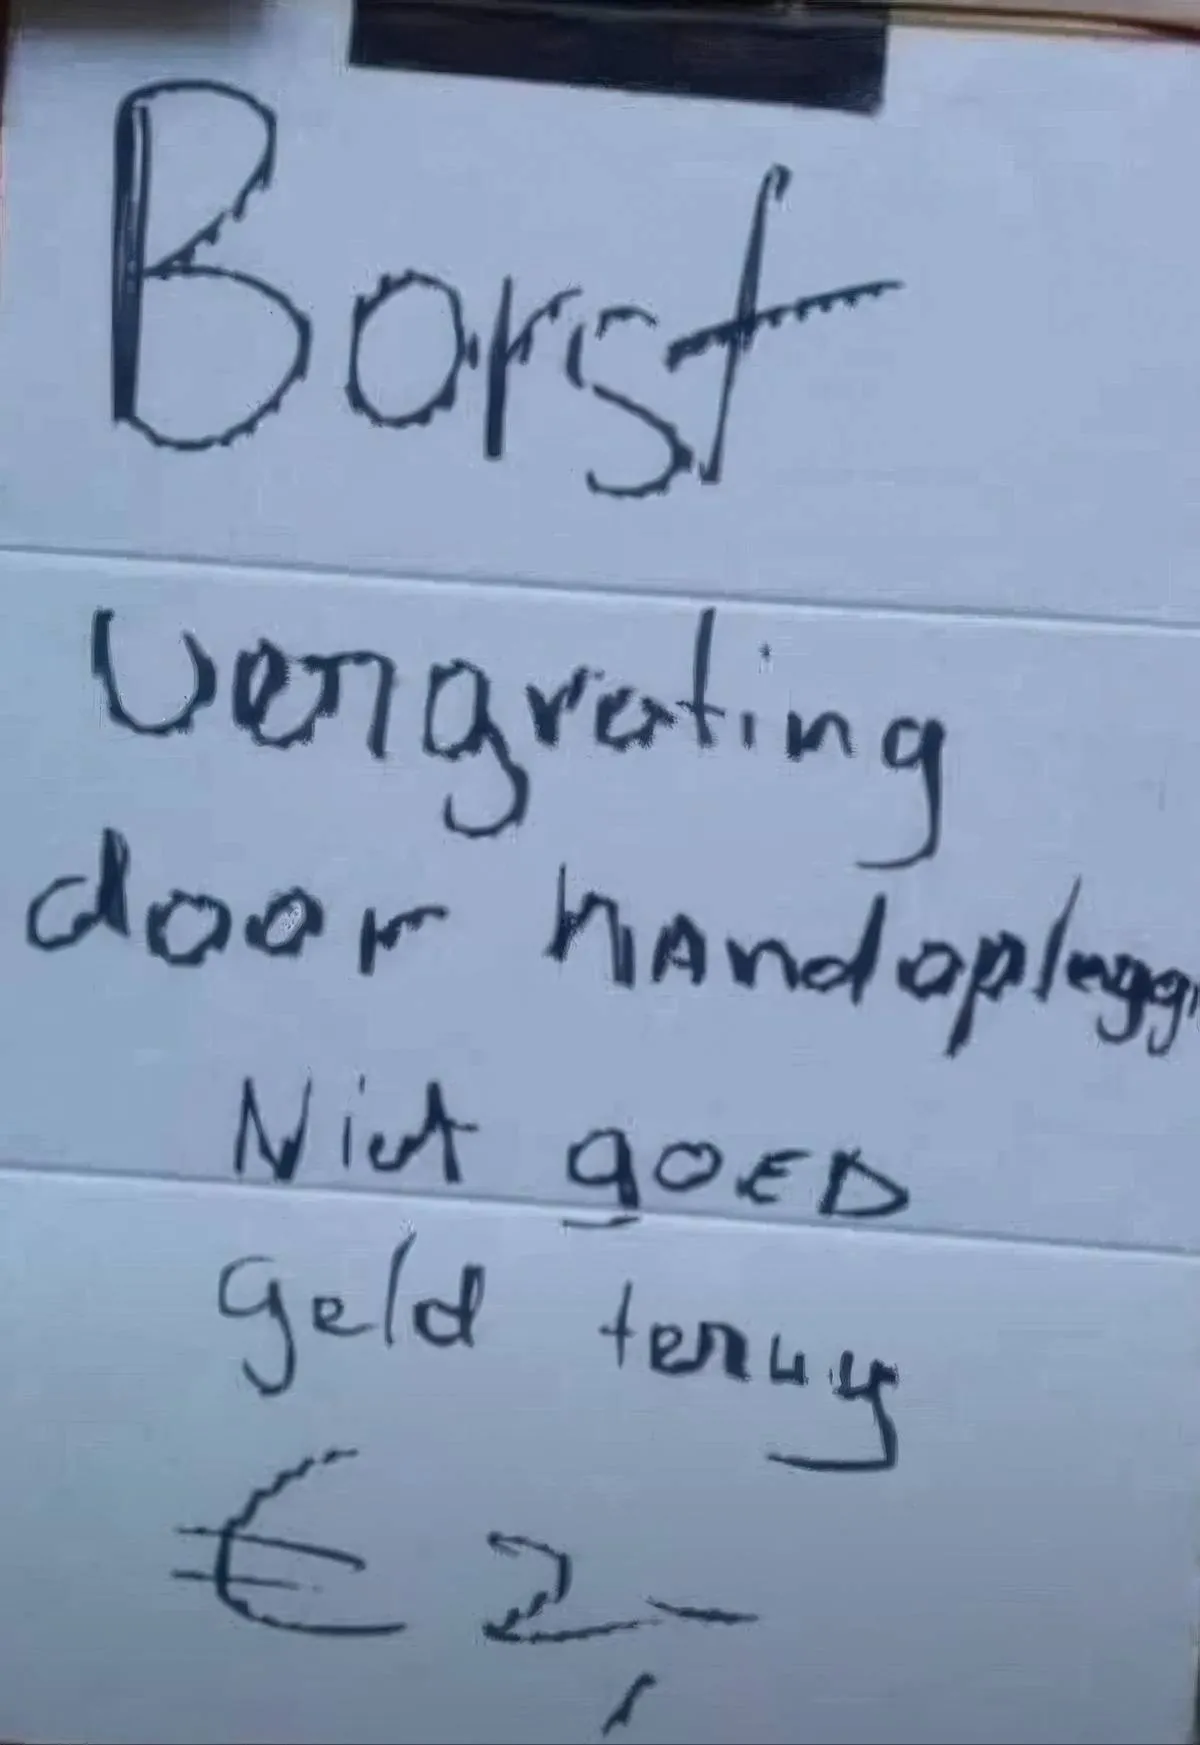 Borst
Vergroting
door handoplegg
Niet goED
geld terug
€ 2,-